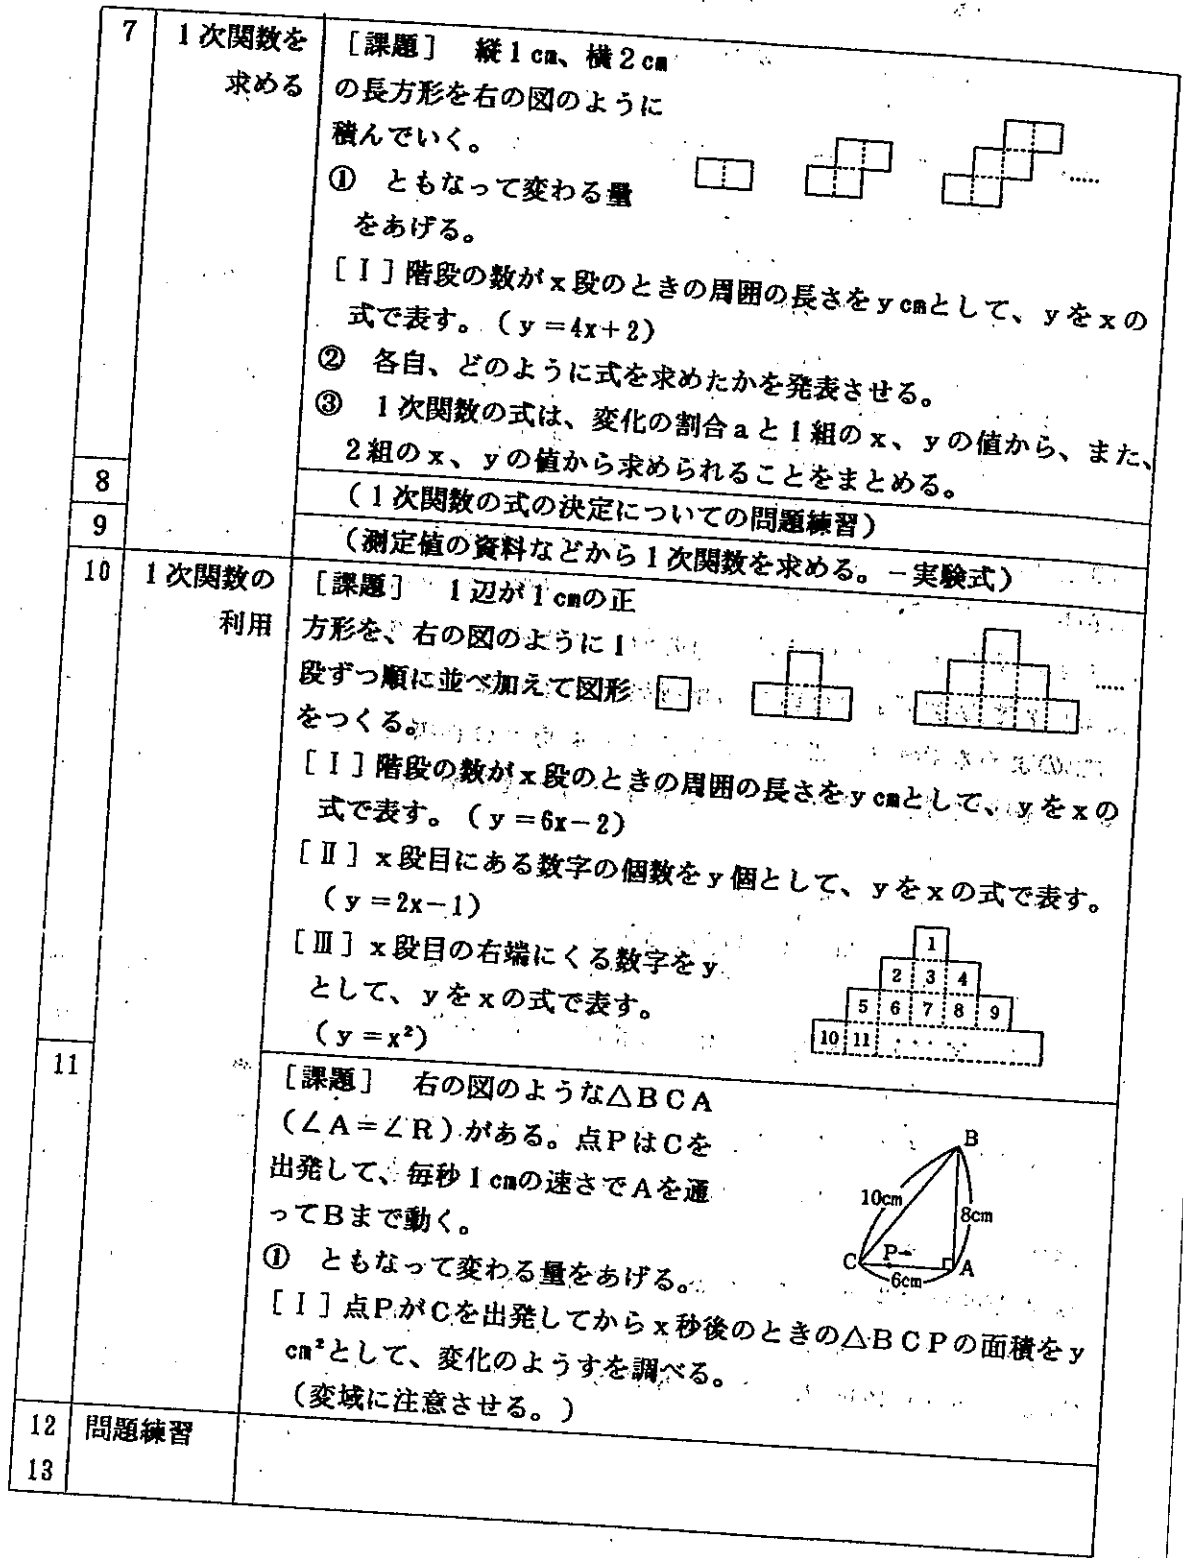 7 1次関数を [課題] 縦1cm、横2cm
求める の長方形を右の図のように
積んでいく。
① ともなって変わる量
をあげる。
......
[Ⅰ]階段の数がx段のときの周囲の長さをycmとして、yをxの
式で表す。(y=4x+2)
② 各自、どのように式を求めたかを発表させる。
③ 1次関数の式は、変化の割合aと1組のx、yの値から、また、
2組のx、yの値から求められることをまとめる。
8 (1次関数の式の決定についての問題練習)
9 (測定値の資料などから1次関数を求める。-実験式)
10 1次関数の [課題] 1辺が1cmの正
利用 方形を、右の図のように1
段ずつ順に並べ加えて図形
をつくる。
......
[Ⅰ]階段の数がx段のときの周囲の長さをycmとして、yをxの
式で表す。(y=6x-2)
[Ⅱ]x段目にある数字の個数をy個として、yをxの式で表す。
(y=2x-1)
[Ⅲ]x段目の右端にくる数字をy
として、yをxの式で表す。
(y=x²)
1
2 3 4
5 6 7 8 9
10 11 ・・・・・
11 [課題] 右の図のような△BCA
(∠A=∠R)がある。点PはCを
出発して、毎秒1cmの速さでAを通
ってBまで動く。
B
10cm
8cm
C P→ A
6cm
① ともなって変わる量をあげる。
[Ⅰ]点PがCを出発してからx秒後のときの△BCPの面積をy
cm²として、変化のようすを調べる。
(変域に注意させる。)
12 問題練習
13